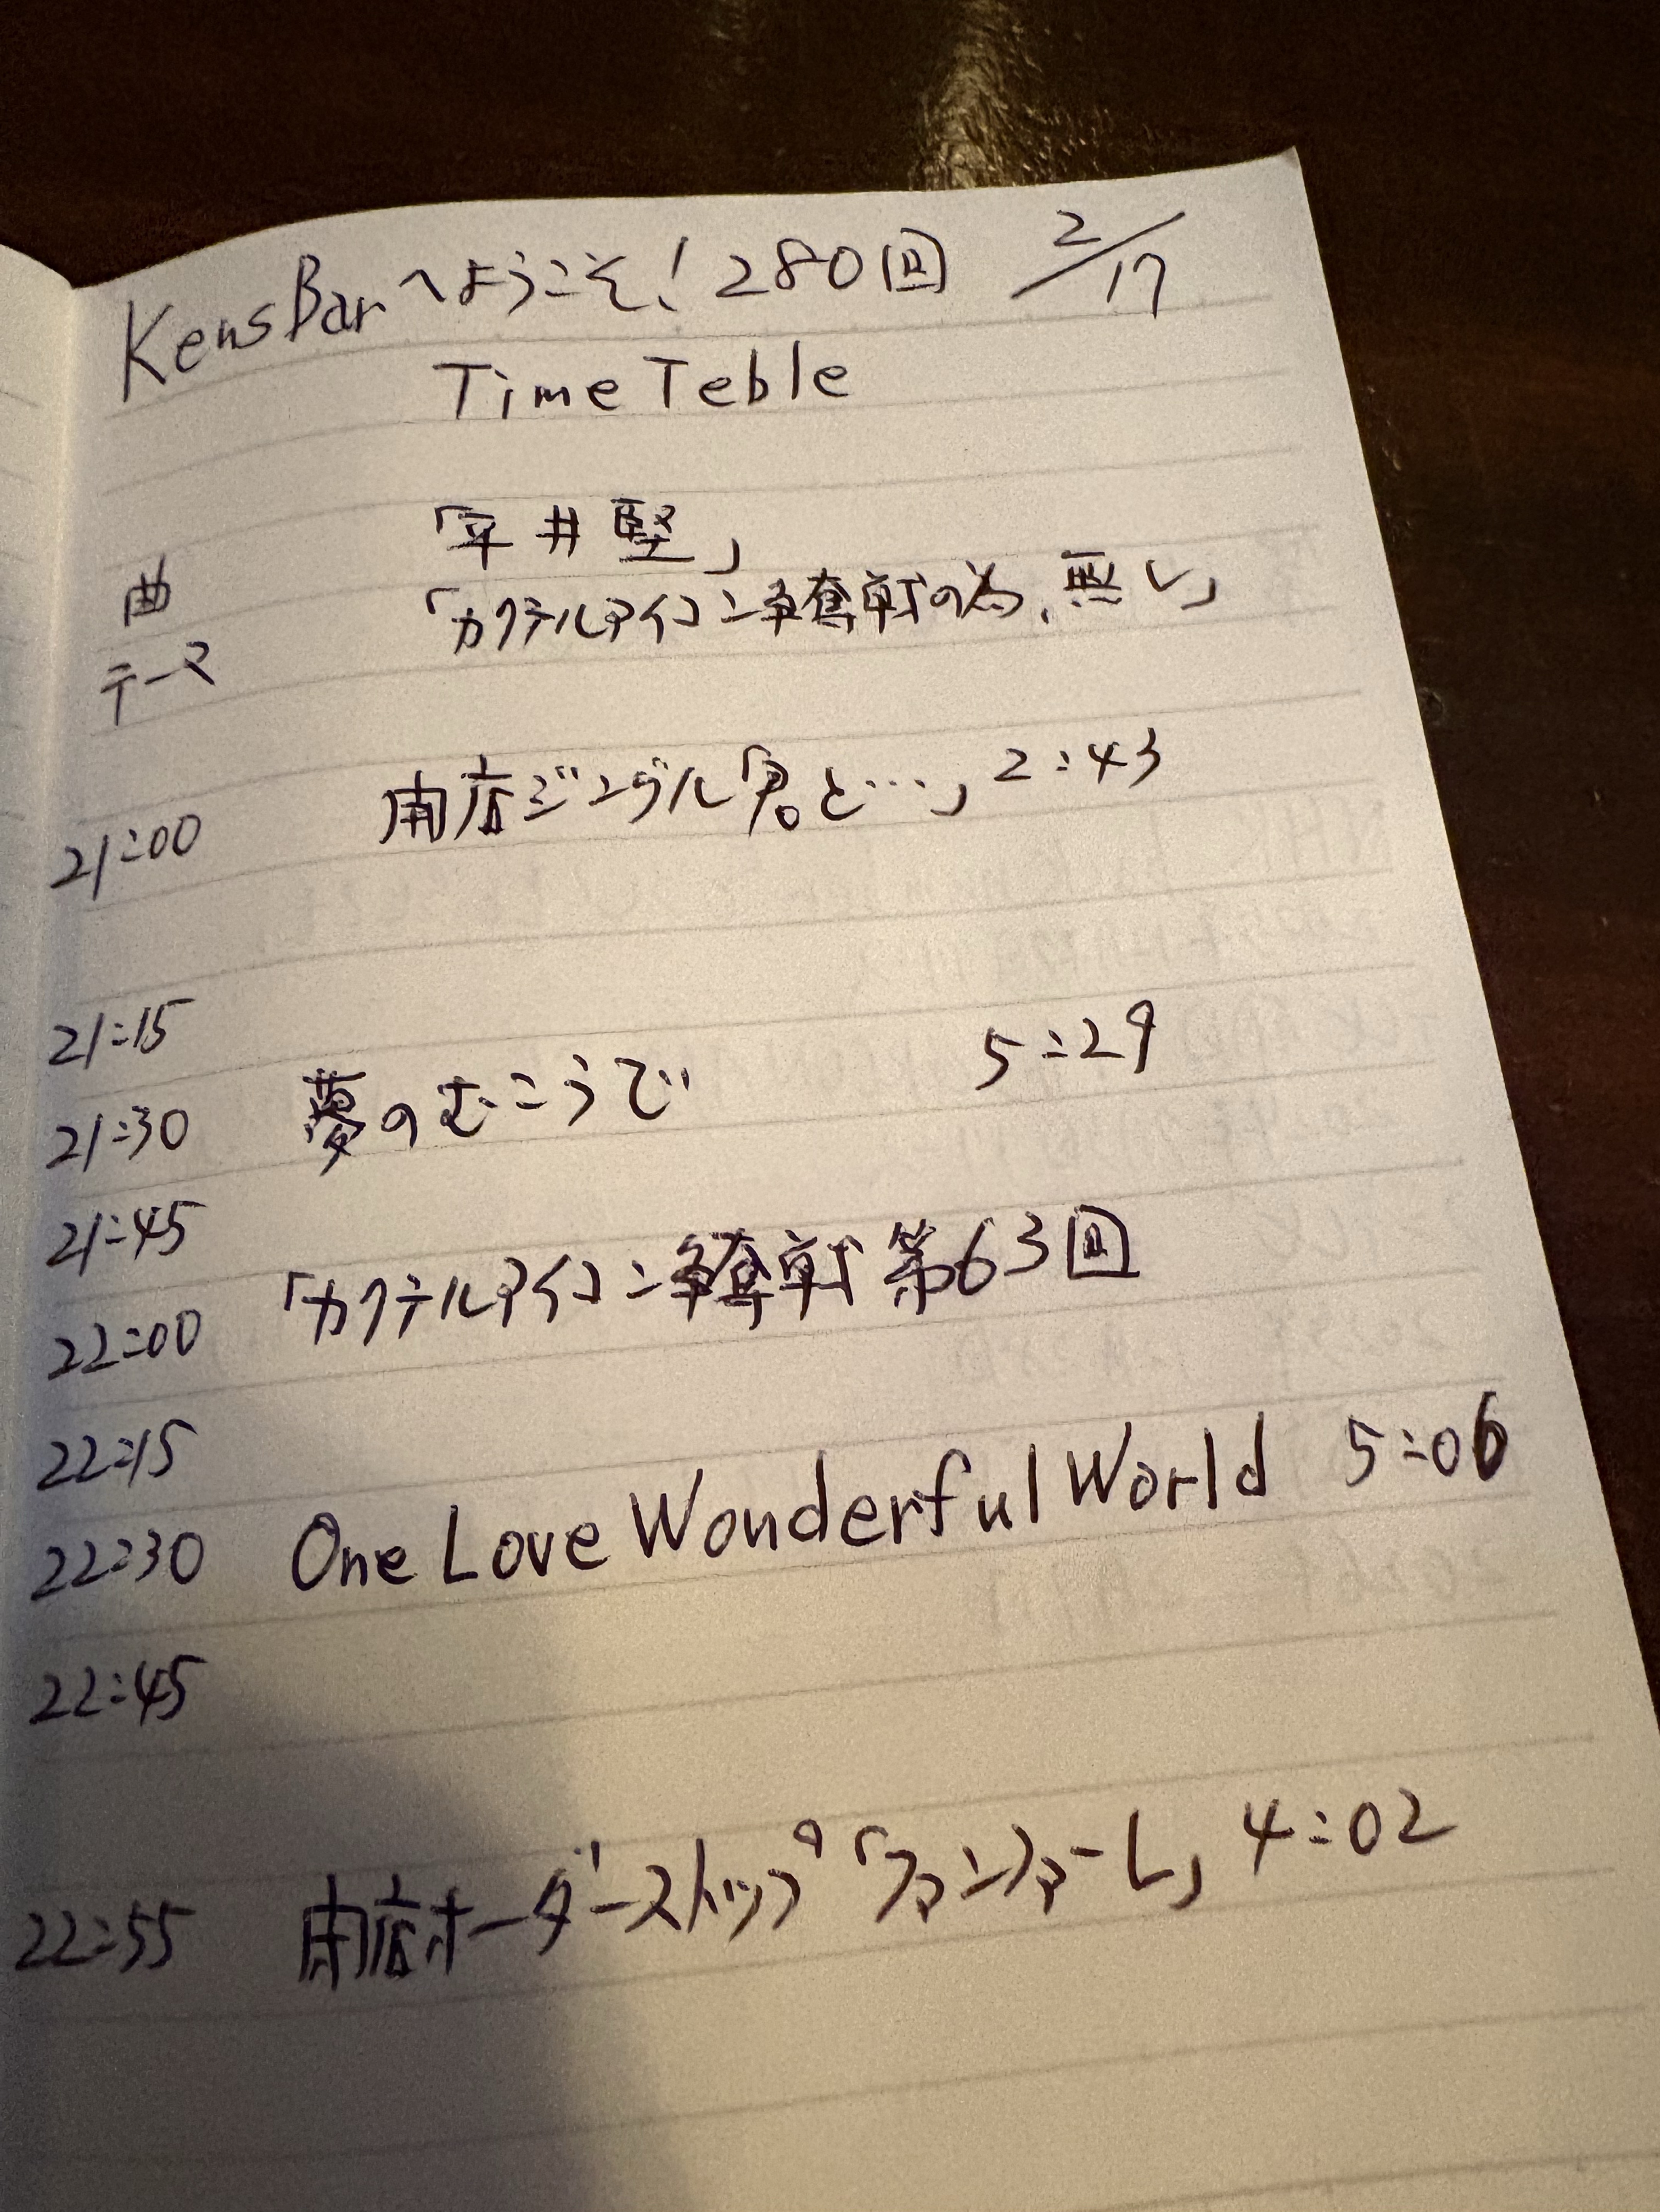 KensBarへようこそ! 280回 2/17
Time Teble
曲 「平井堅」
テーマ 「カクテルアイコン争奪戦の為、無し」
21:00 開店ジングル「君と…」 2:43
21:15
21:30 夢のむこうで 5:29
21:45
22:00 「カクテルアイコン争奪戦 第63回
22:15
22:30 One Love Wonderful World 5:06
22:45
22:55 閉店オーダーストップ「ファンファーレ」 4:02